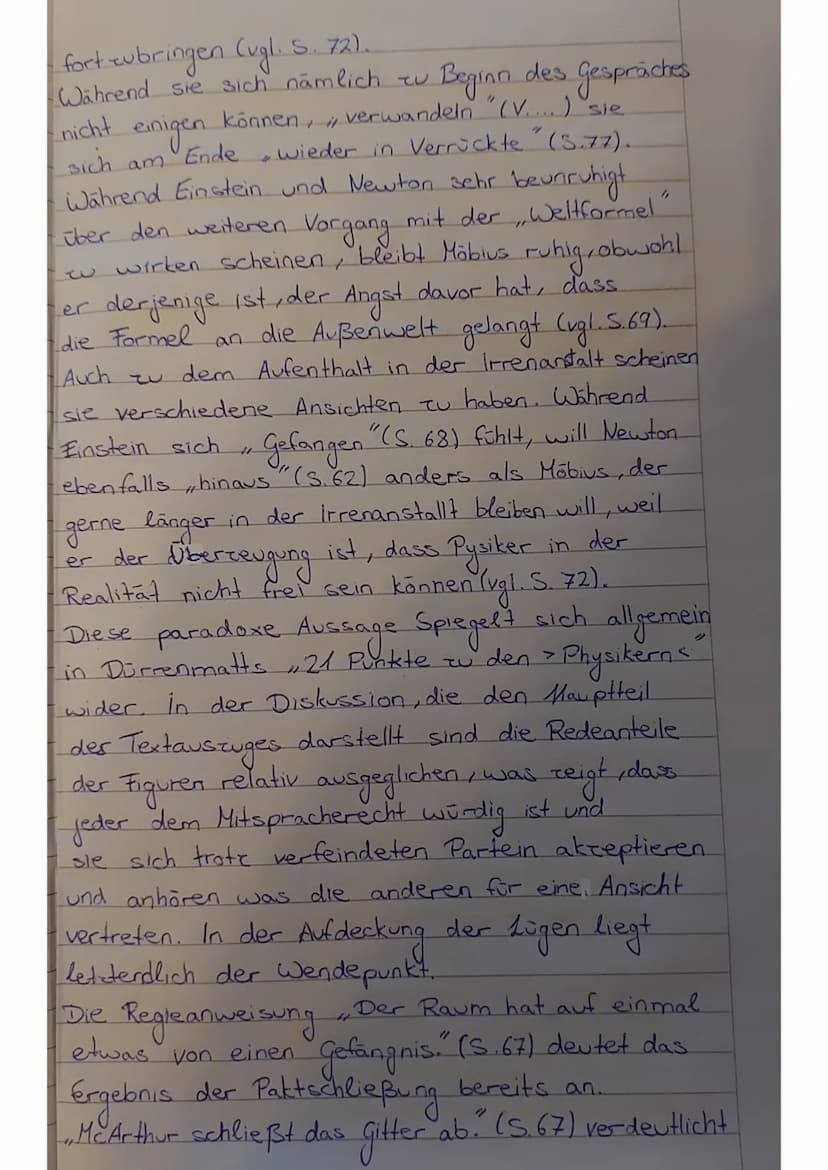 fortzubringen (vgl. S. 72).
Während sie sich nämlich zu Beginn des Gespräches
nicht einigen können, „verwandeln "(V....) sie
sich am Ende „wieder in Verrückte" (S.77).
Während Einstein und Newton sehr beunruhigt
über den weiteren Vorgang mit der „Weltformel"
zu wirken scheinen, bleibt Möbius ruhig, obwohl
er derjenige ist, der Angst davor hat, dass
die Formel an die Außenwelt gelangt (vgl. S.69).
Auch zu dem Aufenthalt in der Irrenanstalt scheinen
sie verschiedene Ansichten zu haben. Während
Einstein sich „Gefangen"(S. 68) fühlt, will Newton
ebenfalls „hinaus"(S.62) anders als Möbius, der
gerne länger in der irrenanstallt bleiben will, weil
er der Überzeugung ist, dass Pysiker in der
Realität nicht frei sein können (vgl. S. 72).
Diese paradoxe Aussage Spiegelt sich allgemein
in Dürrenmatts „21 Punkte zu den >Physikern<"
wider. in der Diskussion, die den Hauptteil
des Textauszuges darstellt sind die Redeanteile
der Figuren relativ ausgeglichen, was zeigt, dass
jeder dem Mitspracherecht würdig ist und
sie sich trotz verfeindeten Partein akzeptieren
und anhören was die anderen für eine Ansicht
vertreten. In der Aufdeckung der Lügen liegt
letzterdlich der Wendepunkt.
Die Regieanweisung „Der Raum hat auf einmal
etwas von einen Gefängnis." (S.67) deutet das
Ergebnis der Paktschließung bereits an.
„McArthur schließt das Gitter ab." (S.67) verdeutlicht